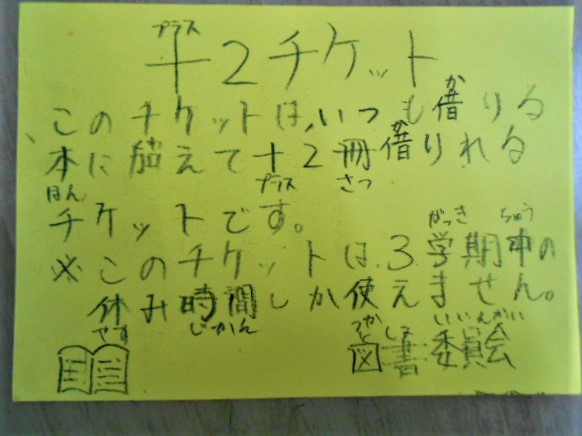 プラス
+2チケット
か
このチケットは,いつも借りる
か
本に加えて+2冊借りれる
ほん プラス さつ
チケットです。
がっき ちゅう
※このチケットは3学期中の
休み時間しか使えません。
やす じかん つか
としょ いいんかい
図書委員会